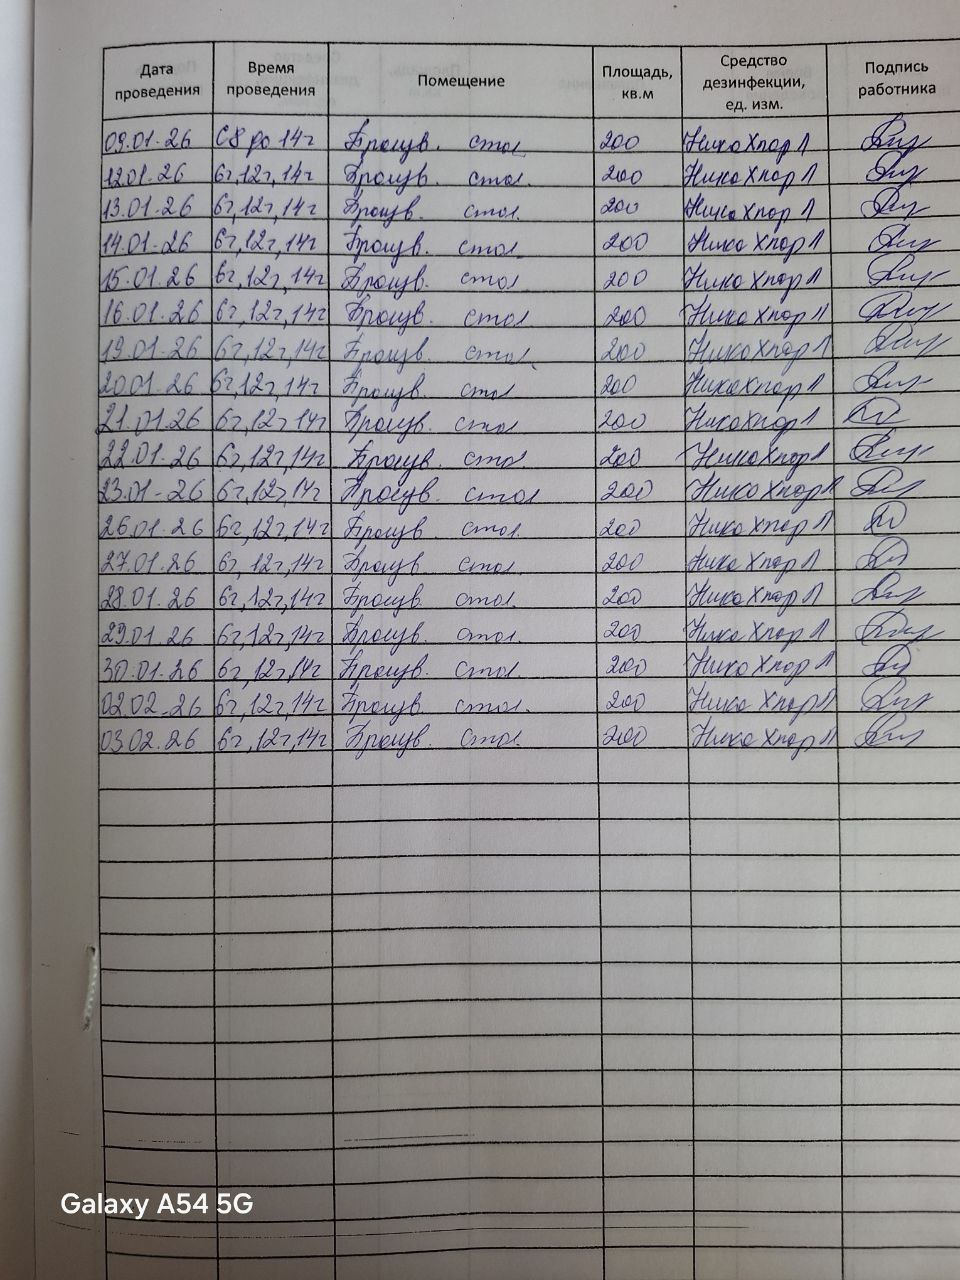 Дата проведения Время проведения Помещение Площадь, кв.м Средство дезинфекции, ед. изм. Подпись работника
09.01.26 С8 до 14ч Произв. стол 200 НикаХлор Л
12.01.26 6ч,12ч,14ч Произв. стол. 200 НикаХлор Л
13.01.26 6ч,12ч,14ч Произв. стол. 200 НикаХлор Л
14.01.26 6ч,12ч,14ч Произв. стол. 200 Ника Хлор Л
15.01.26 6ч,12ч,14ч Произв. стол 200 Ника Хлор Л
16.01.26 6ч,12ч,14ч Произв. стол 200 Ника Хлор Л
19.01.26 6ч,12ч,14ч Произв. стол. 200 НикаХлор Л
20.01.26 6ч,12ч,14ч Произв. стол 200 НикаХлор Л
21.01.26 6ч,12ч,14ч Произв. стол 200 НикаХлор Л
22.01.26 6ч,12ч,14ч Произв. стол 200 НикаХлор Л
23.01.26 6ч,12ч,14ч Произв. стол 200 Ника Хлор Л
26.01.26 6ч,12ч,14ч Произв. стол. 200 Ника Хлор Л
27.01.26 6ч,12ч,14ч Произв. стол. 200 Ника Хлор Л
28.01.26 6ч,12ч,14ч Произв. стол. 200 Ника Хлор Л
29.01.26 6ч,12ч,14ч Произв. стол. 200 Ника Хлор Л
30.01.26 6ч,12ч,14ч Произв. стол. 200 Ника Хлор Л
02.02.26 6ч,12ч,14ч Произв. стол. 200 Ника Хлор Л
03.02.26 6ч,12ч,14ч Произв. стол. 200 Ника Хлор Л
Galaxy A54 5G